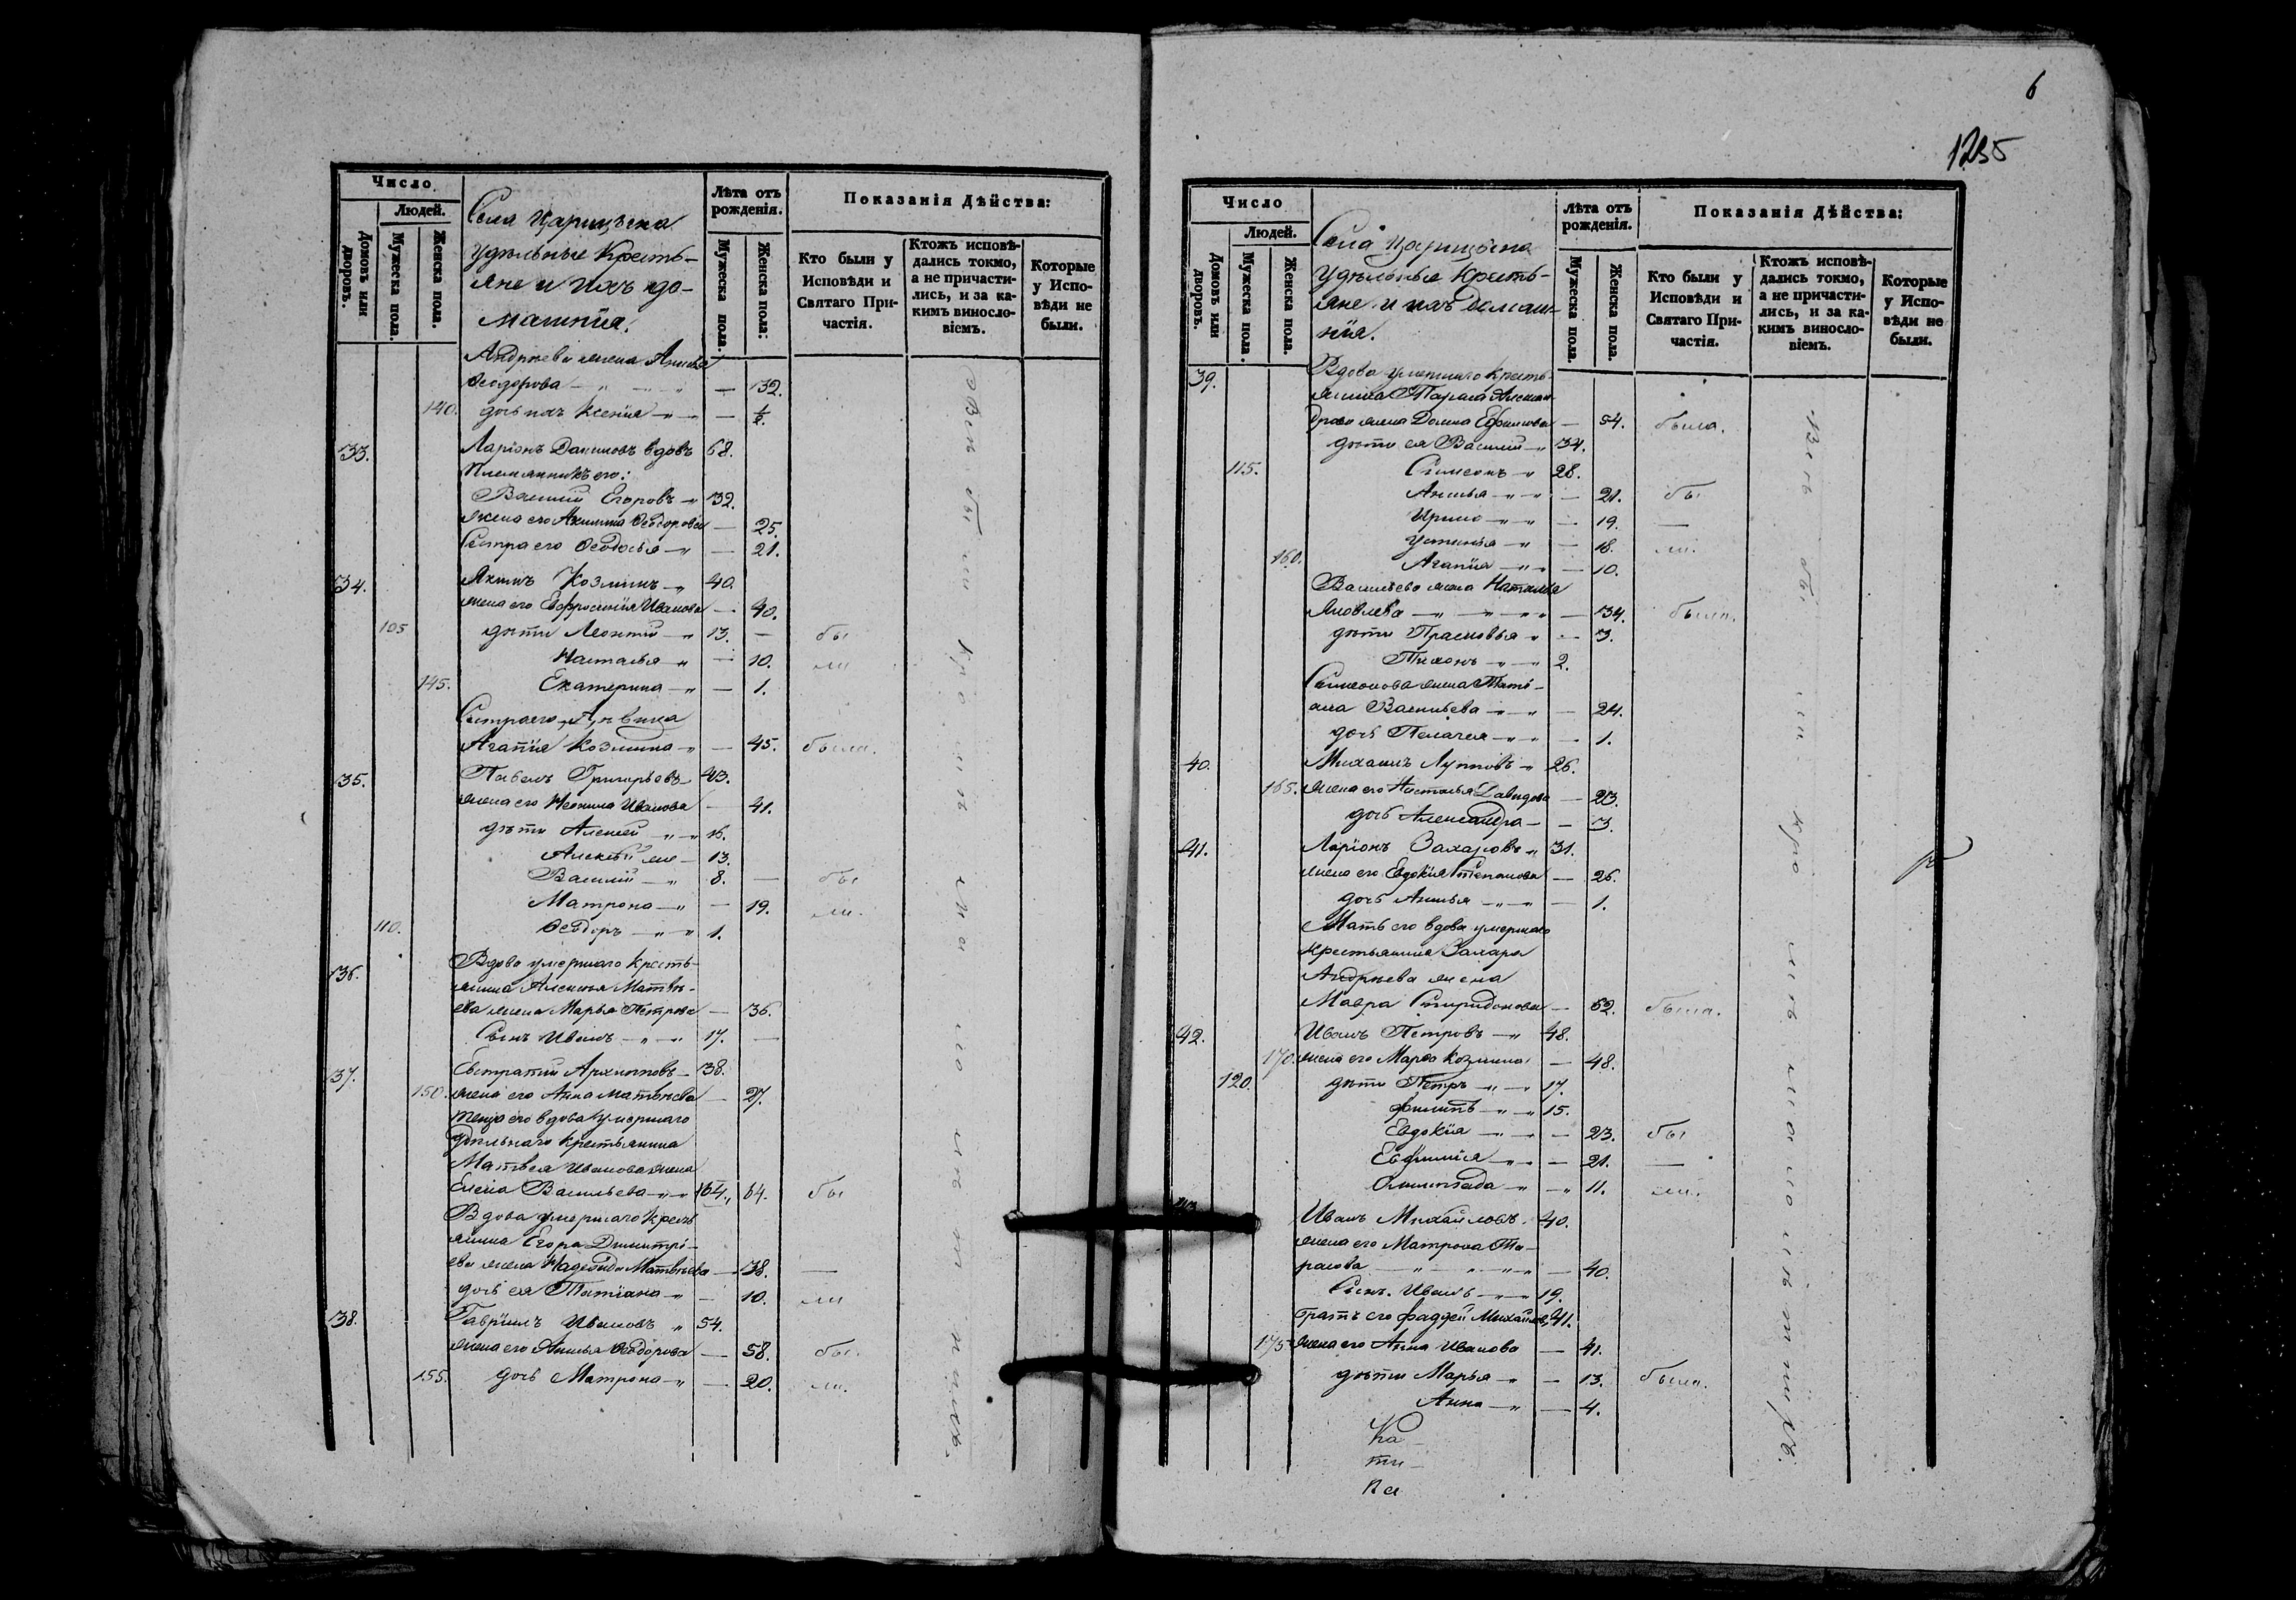 Число
Людей.
Домовъ или дворовъ.
Мужеска пола.
Женска пола.
Села Царицына
Удѣльные Кресть-
яне и ихъ до-
машнія.
Лѣта отъ рожденія.
Мужеска пола.
Женска пола:
Показанія Дѣйства:
Кто были у Исповѣди и Святаго При- частія.
Ктожъ исповѣ- дались токмо, а не причасти- лись, и за ка- кимъ винословіемъ.
Которые у Испо- вѣди не были.
Андрѣева жена Анисья
Ѳеодорова — 32.
140. дочь ихъ Ксенія — ½.
33. Ларіонъ Даниловъ вдовъ 68.
Племянникъ его:
Василій Егоровъ 32.
жена его Акилина Ѳеодорова — 25.
Сестра его Ѳеодосья — 21.
34. Якимъ Козминъ 40.
жена его Евфросинія Иванова — 40.
105 дѣти Леонтій 13. — бы
Наталья — 10. ли
145. Екатерина — 1.
Сестра его дѣвица
Агапія Козмина — 45. была.
35. Павелъ Григорьевъ 43.
жена его Неонила Иванова — 41.
дѣти Алексей 16.
Алексѣй же 13.
Василій 8. — бы
Матрона — 19. ли.
110. Ѳеодоръ 1.
36. Вдова умершаго кресть-
янина Алексея Матвѣ-
ева жена Марья Петрова — 36.
Сынъ Иванъ 17. —
37. Евстратій Архиповъ 38.
150. жена его Анна Матвѣева — 27.
теща его вдова умершаго
удѣльнаго крестьянина
Матвея Иванова жена
Елена Васильева 64. 64. бы
Вдова умершаго кресть
янина Егора Димитрі-
ева жена Надежда Матвѣева — 38. —
дочь ея Татіана — 10. ли
38. Гавріилъ Ивановъ 54.
жена его Анисья Ѳеодорова — 58. бы.
155. дочь Матрона — 20. ли.
Всѣ бы ли кро мѣ ма ло лѣ т ныхъ.
6
1235
Число
Людей.
Домовъ или дворовъ.
Мужеска пола.
Женска пола.
Села Царицына
Удѣльные Кресть-
яне и ихъ домаш-
нія.
Лѣта отъ рожденія.
Мужеска пола.
Женска пола.
Показанія Дѣйства:
Кто были у Исповѣди и Святаго При- частія.
Ктожъ исповѣ- дались токмо, а не причасти- лись, и за ка- кимъ винословіемъ.
Которые у Испо- вѣди не были.
39. Вдова умершаго кресть-
янина Тараса Алексан-
дрова жена Домна Ефимова — 54. была.
дѣти ея Василій 34.
115. Симеонъ 28.
Анисья — 21. бы
Ирина — 19. —
Устинья — 18. ли.
160. Агапія — 10.
Васильева жена Наталья
Яковлева — 34. была.
дѣти Прасковья — 3.
Тихонъ 2.
Симеонова жена Тати-
ана Васильева — 24.
дочь Пелагея — 1.
40. Михаилъ Лупповъ 26.
165. жена его Наталья Давидова — 23.
дочь Александра — 3.
41. Ларіонъ Захаровъ 31.
жена его Евдокія Степанова — 26.
дочь Анисья — 1.
Мать его вдова умершаго
крестьянина Захара
Андрѣева жена
Мавра Спиридонова — 62. была.
42. Иванъ Петровъ 48.
170. жена его Марфа Козмина — 48.
120. дѣти Петръ 17.
Филипъ 15.
Евдокія — 23. бы
Евфимія — 21. —
Олимпіада — 11. ли.
43 Иванъ Михайловъ 40.
жена его Матрона Та-
расова — 40.
Сынъ Иванъ 19.
братъ его Фаддей Михайловъ 41.
175 жена его Анна Иванова — 41.
дѣти Марья — 13. была.
Анна — 4.
Всѣ бы ли кро мѣ ма ло лѣ т ныхъ.
Ка
ти-
па